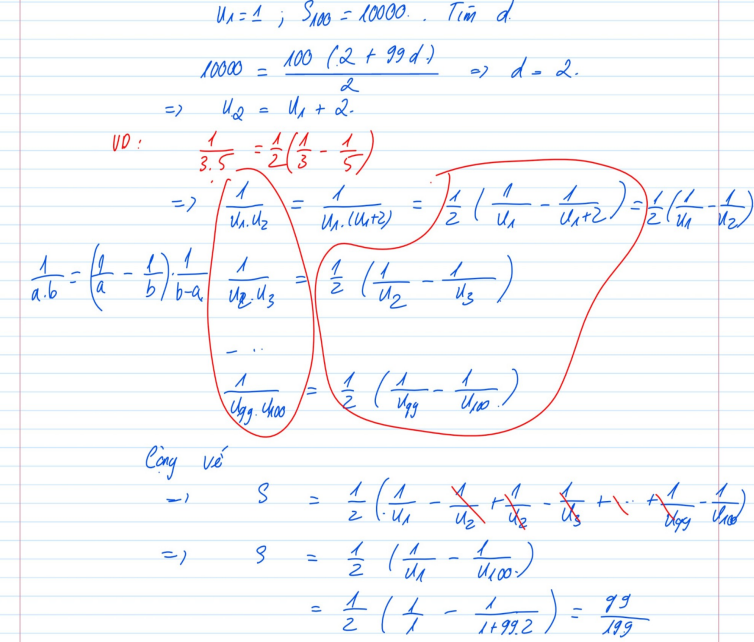 u₁ = 1 ; S₁₀₀ = 10000. Tìm d.
10000 = 100 (2 + 99d) / 2 => d = 2.
=> u₂ = u₁ + 2.
VD: 1/3.5 = 1/2 (1/3 - 1/5)
=> 1/u₁.u₂ = 1/u₁.(u₁+2) = 1/2 (1/u₁ - 1/u₁+2) = 1/2 (1/u₁ - 1/u₂)
1/a.b = (1/a - 1/b).1/b-a 1/u₂.u₃ = 1/2 (1/u₂ - 1/u₃)
- ..
1/u₉₉.u₁₀₀ = 1/2 (1/u₉₉ - 1/u₁₀₀)
Cộng vế
=> S = 1/2 (1/u₁ - 1/u₂ + 1/u₂ - 1/u₃ + .. + 1/u₉₉ - 1/u₁₀₀)
=> S = 1/2 (1/u₁ - 1/u₁₀₀)
= 1/2 (1/1 - 1/1+99.2) = 99/199